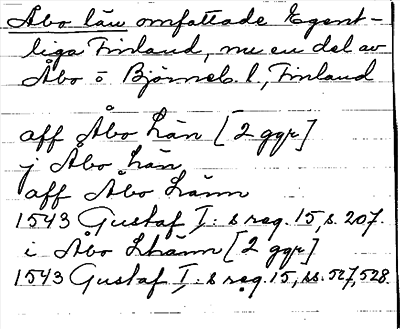 Åbo län omfattade Egent-
liga Finland, nu en del av
Åbo o Björneb. l., Finland
aff Åbo Län [2 ggr]
j Åbo Län
aff Åbo Länn
1543 Gustaf I:s reg. 15, s. 207.
i Åbo Lhänn [2 ggr]
1543 Gustaf I:s reg. 15, ss. 527, 528.